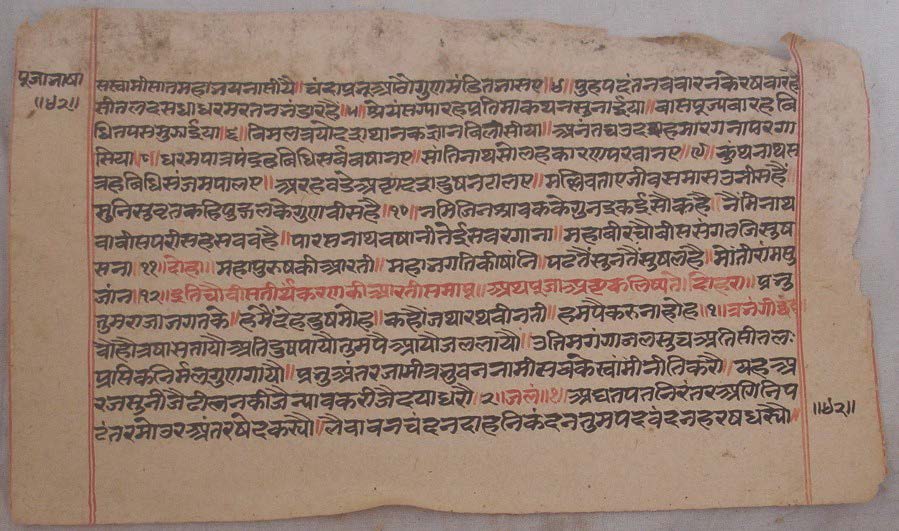 पूजाभाषा
॥४२॥
सस्वामीसातमहाभयनासीयै॥ चंदाप्रभुआठौगुणमंडितभासए॥४॥ पुहपदंतनववारनंकेरषवारहै
सीतलदसधाधरमरतनभंडारहै॥५॥ श्रेयंसग्यारहप्रतिमाकथनसुनाईया॥ वासपूज्यबारहबि
धितपससुगाईया॥६॥ विमलत्रयोदशथानकज्ञानविलासीया॥ अनंतचउदहमारगनापरगा
सिया॥८॥ धरमपात्रपंद्रहविधिसर्वबषानए॥ सांतिनाथसोलहकारणपरवानए॥९॥ कुंथनाथस
त्रहविधिसंजमपालए॥ अरहवडेअष्टादशदुषनटालए॥ मल्लिवताएजीवसमासउनीसहैं
मुनिसुव्रतकहिपुद्गलकेगुणवीसहै॥१०॥ नमिजिनश्रावककेगुनइकईसौकहै॥ नैंमिनाथ
बावीसपरीसहसबवहै॥ पारसनाथबषानीतेईसवरगाना॥ महावीरचौवीससंगतजिसुष
सना॥११॥ दोहा॥ महापुरुषकीआरती॥ महाभगतिकीषांनि॥ पढतैंसुनतैंसुषलहै॥ मोतीरांमपु
जांन॥१२॥ इतिचौवीसतीर्थंकरणकीआरतीसमाप्त॥ अथपूजाअष्टकलिष्यते॥ दोहरा॥ प्रभु
तुमराजाजगतके॥ हमैंदेहदुषमोह॥ कहौंजथारथवीनती॥ हमपैकरुनाहोह॥१॥ त्रभंगीछंद॥
बौहौत्रषासतायौअतिदुषपायौतुमपेआयौजललायौ॥ उतिमगंगाजलसुचअतिसीतलः
प्रासिकनिर्मलगुणगायौ॥ प्रभुअंतरजामीत्रभुवननामीसबकेस्वांमीनीतिकरौ॥ यहअ
रजसुनीजैढीलनकीजैन्यावकरीजैदयाधरौ॥२॥ जलं॥१॥ अघतपतनिरंतरअगिनिप
टंतरमोउरअंतरषेदकर्यौ॥ लैबावनचंदनदाहनिकंदनतुमपदवंदनहरषधर्यौ॥
॥४२॥